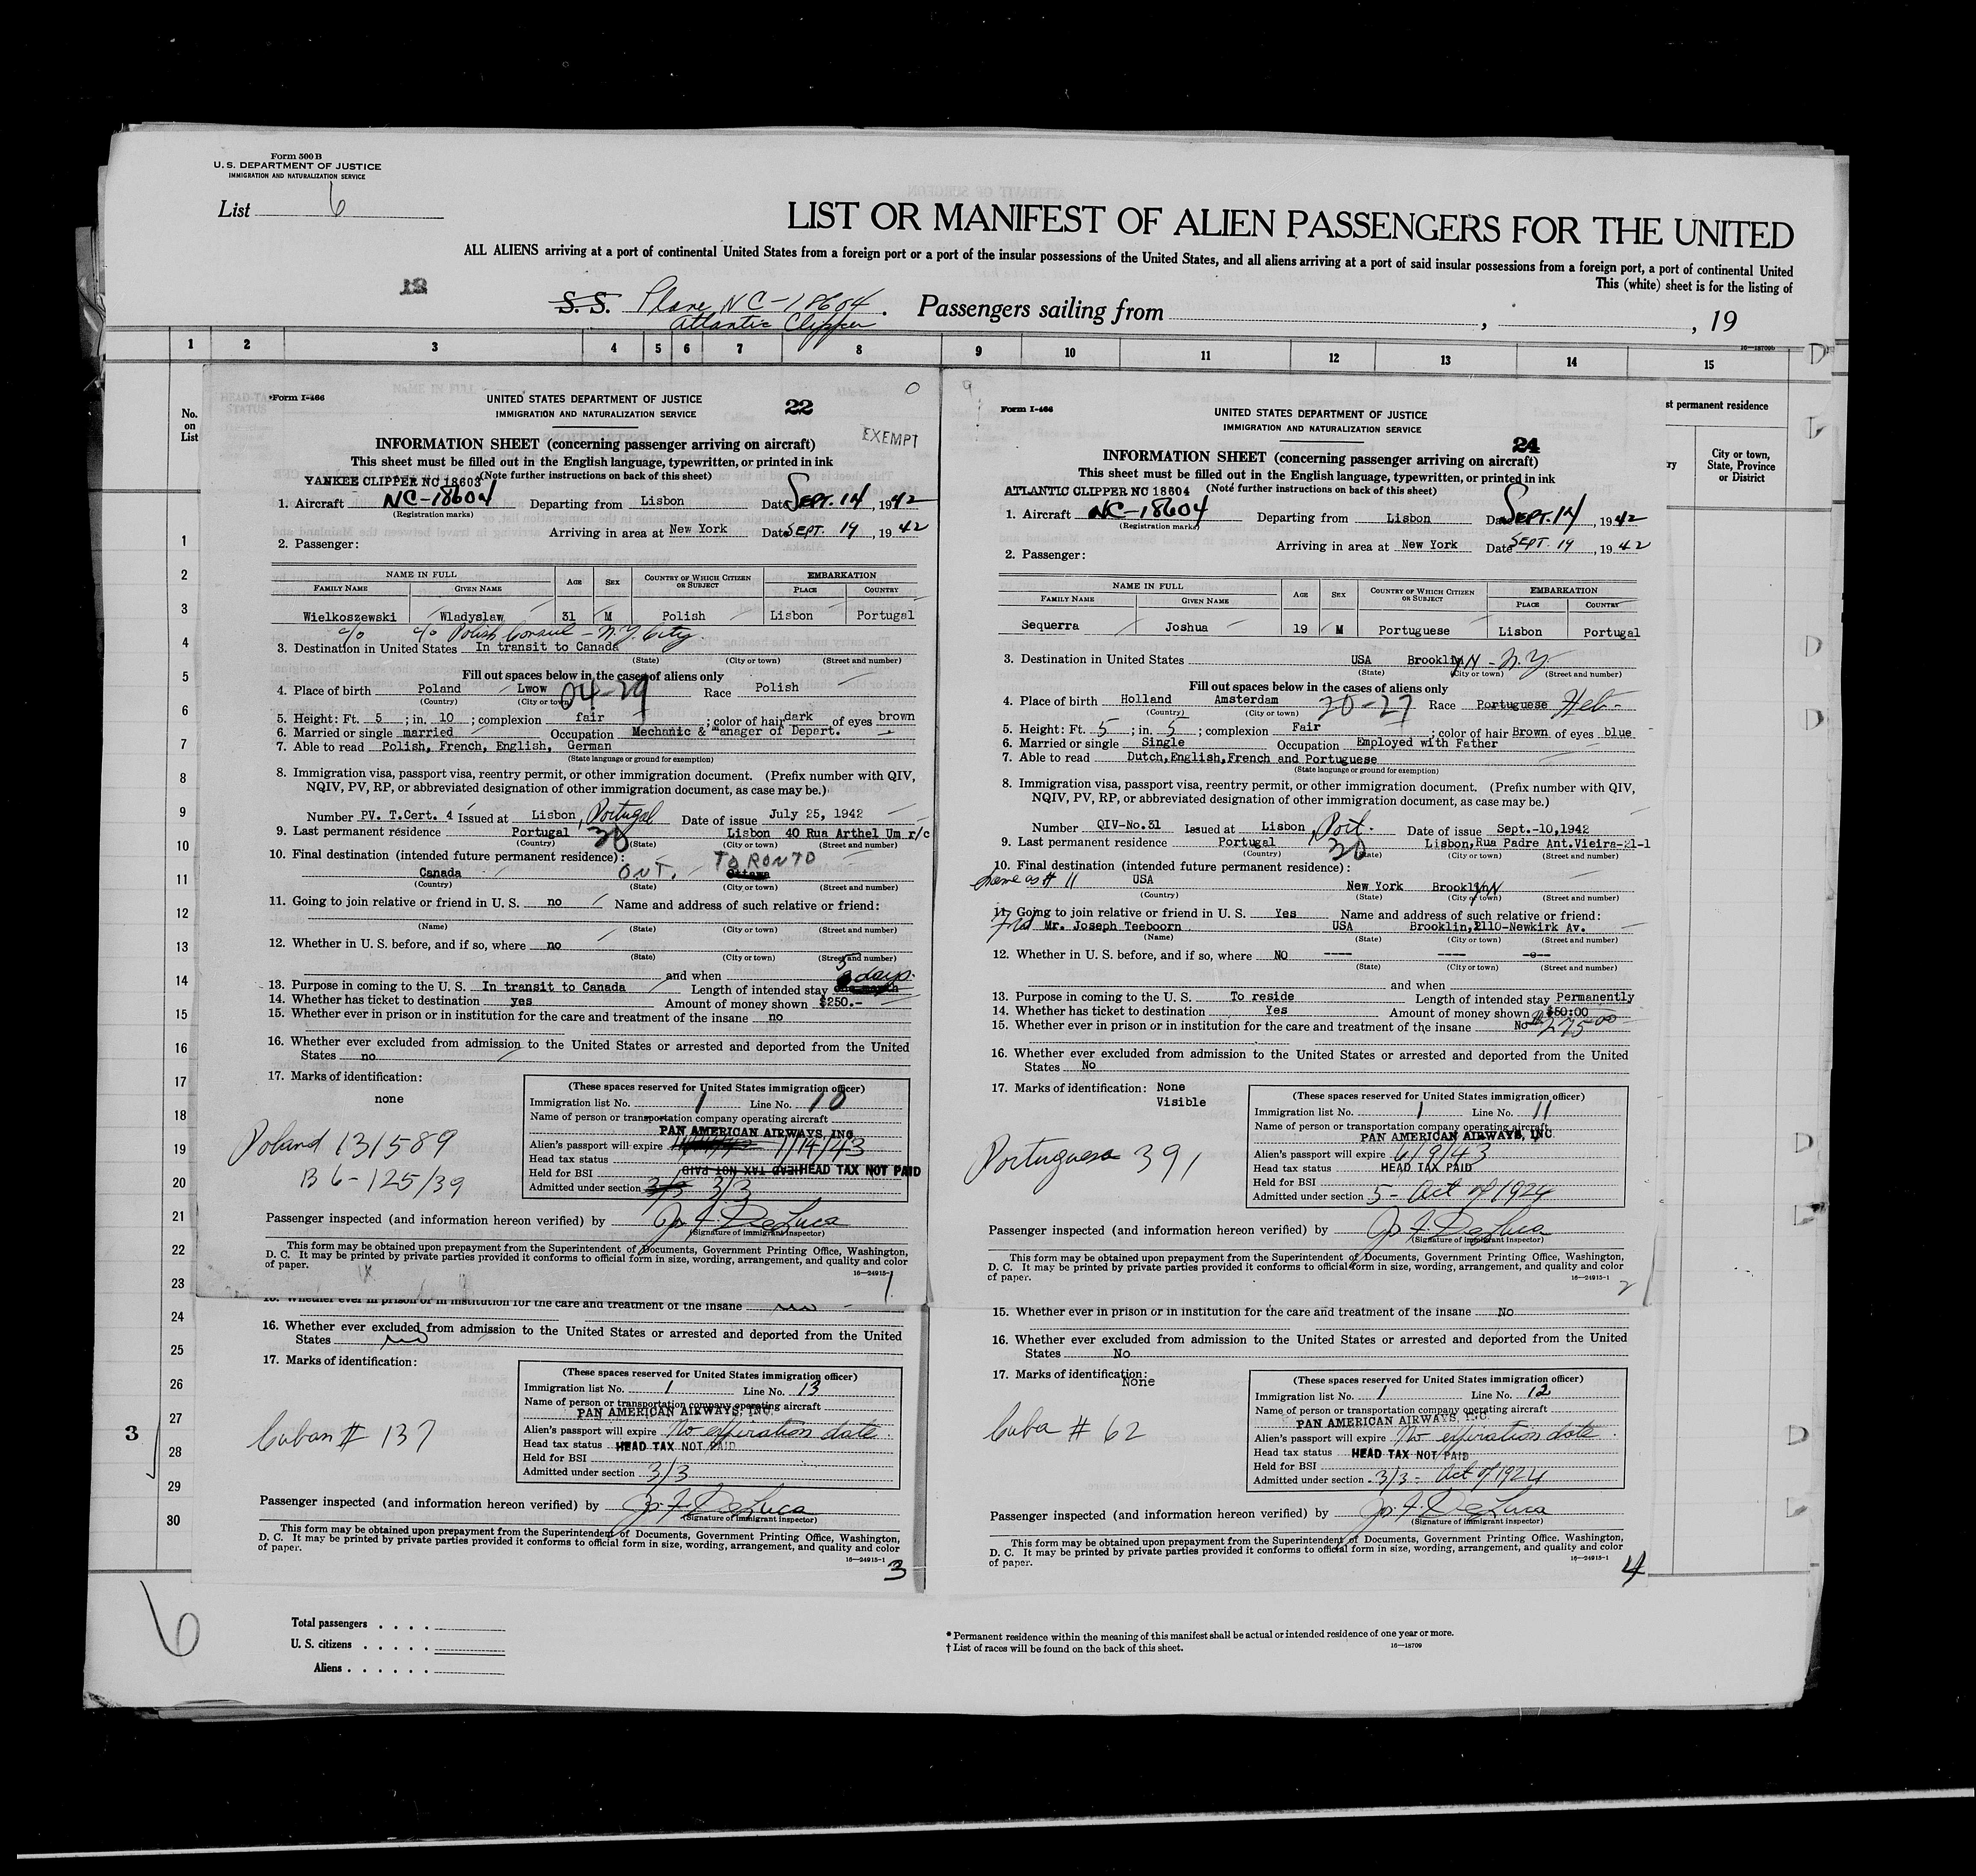 Form 500 B
U. S. DEPARTMENT OF JUSTICE
IMMIGRATION AND NATURALIZATION SERVICE
List 6
LIST OR MANIFEST OF ALIEN PASSENGERS FOR THE UNITED
ALL ALIENS arriving at a port of continental United States from a foreign port or a port of the insular possessions of the United States, and all aliens arriving at a port of said insular possessions from a foreign port, a port of continental United
This (white) sheet is for the listing of
12
S. S. Plane NC-18604. Passengers sailing from , , 19
Atlantic Clipper
16—18709b
1 2 3 4 5 6 7 8 9 10 11 12 13 14 15
No. on List
st permanent residence
ry
City or town, State, Province or District
1
2
3
4
5
6
7
8
9
10
11
12
13
14
15
16
17
18
19
20
21
22
23
24
25
26
27
28
29
30
3
*Form I-466
UNITED STATES DEPARTMENT OF JUSTICE
IMMIGRATION AND NATURALIZATION SERVICE
22
EXEMPT
INFORMATION SHEET (concerning passenger arriving on aircraft)
This sheet must be filled out in the English language, typewritten, or printed in ink
(Note further instructions on back of this sheet)
YANKEE CLIPPER NC 18603
1. Aircraft NC-18604 Departing from Lisbon Date SEPT. 14, 1942
(Registration marks)
Arriving in area at New York Date SEPT. 19, 1942
2. Passenger:
NAME IN FULL AGE SEX COUNTRY OF WHICH CITIZEN OR SUBJECT EMBARKATION
FAMILY NAME GIVEN NAME PLACE COUNTRY
Wielkoszewski Wladyslaw 31 M Polish Lisbon Portugal
c/o c/o Polish Consul - N.Y. City
3. Destination in United States In transit to Canada
(State) (City or town) (Street and number)
Fill out spaces below in the cases of aliens only
4. Place of birth Poland Lwow 04-29 Race Polish
(Country) (City or town)
5. Height: Ft. 5 ; in. 10 ; complexion fair ; color of hair dark of eyes brown
6. Married or single married Occupation Mechanic & manager of Depart.
7. Able to read Polish, French, English, German
(State language or ground for exemption)
8. Immigration visa, passport visa, reentry permit, or other immigration document. (Prefix number with QIV,
NQIV, PV, RP, or abbreviated designation of other immigration document, as case may be.)
Number PV. T.Cert. 4 Issued at Lisbon, Portugal Date of issue July 25, 1942
9. Last permanent residence Portugal 30 Lisbon 40 Rua Arthel Um r/c
(Country) (State) (City or town) (Street and number)
10. Final destination (intended future permanent residence): TORONTO
Canada ONT. Ottawa
(Country) (State) (City or town) (Street and number)
11. Going to join relative or friend in U. S. no Name and address of such relative or friend:
(Name) (State) (City or town) (Street and number)
12. Whether in U. S. before, and if so, where no
(State) (City or town) (Street and number)
and when
5 days
13. Purpose in coming to the U. S. In transit to Canada Length of intended stay one month
14. Whether has ticket to destination yes Amount of money shown $250.-
15. Whether ever in prison or in institution for the care and treatment of the insane no
16. Whether ever excluded from admission to the United States or arrested and deported from the United
States no
17. Marks of identification:
none
Poland 131589
B 6-125/39
(These spaces reserved for United States immigration officer)
Immigration list No. 1 Line No. 10
Name of person or transportation company operating aircraft
PAN AMERICAN AIRWAYS, INC
Alien's passport will expire 1/14/43
Head tax status HEAD TAX NOT PAID HEAD TAX NOT PAID
Held for BSI
Admitted under section 3/3 3/3
Passenger inspected (and information hereon verified) by Jos. F. DeLuca
(Signature of immigrant inspector)
This form may be obtained upon prepayment from the Superintendent of Documents, Government Printing Office, Washington,
D. C. It may be printed by private parties provided it conforms to official form in size, wording, arrangement, and quality and color
of paper.
16—24915-1
1
Form I-466
UNITED STATES DEPARTMENT OF JUSTICE
IMMIGRATION AND NATURALIZATION SERVICE
24
INFORMATION SHEET (concerning passenger arriving on aircraft)
This sheet must be filled out in the English language, typewritten, or printed in ink
ATLANTIC CLIPPER NC 18604 (Note further instructions on back of this sheet)
1. Aircraft NC-18604 Departing from Lisbon Date SEPT. 14, 1942
(Registration marks)
Arriving in area at New York Date SEPT 19, 1942
2. Passenger:
NAME IN FULL AGE SEX COUNTRY OF WHICH CITIZEN OR SUBJECT EMBARKATION
FAMILY NAME GIVEN NAME PLACE COUNTRY
Sequerra Joshua 19 M Portuguese Lisbon Portugal
3. Destination in United States USA BrooklYN - N.Y
(State) (City or town) (Street and number)
Fill out spaces below in the cases of aliens only
4. Place of birth Holland Amsterdam 20-27 Race Portuguese Heb-
(Country) (City or town)
5. Height: Ft. 5 ; in. 5 ; complexion Fair ; color of hair Brown of eyes blue
6. Married or single Single Occupation Employed with Father
7. Able to read Dutch,English,French and Portuguese
(State language or ground for exemption)
8. Immigration visa, passport visa, reentry permit, or other immigration document. (Prefix number with QIV,
NQIV, PV, RP, or abbreviated designation of other immigration document, as case may be.)
Number QIV-No.31 Issued at Lisbon, Port. Date of issue Sept.-10,1942
9. Last permanent residence Portugal 30 Lisbon,Rua Padre Ant.Vieira-21-1
(Country) (State) (City or town) (Street and number)
10. Final destination (intended future permanent residence):
Same as # 11 USA New York BrooklYN
(Country) (State) (City or town) (Street and number)
11. Going to join relative or friend in U. S. Yes Name and address of such relative or friend:
Frd Mr. Joseph Teeboorn USA Brooklin,2110-Newkirk Av.
(Name) (State) (City or town) (Street and number)
12. Whether in U. S. before, and if so, where NO ---- ---- --o--
(State) (City or town) (Street and number)
and when
13. Purpose in coming to the U. S. To reside Length of intended stay Permanently
14. Whether has ticket to destination Yes Amount of money shown $50:00
15. Whether ever in prison or in institution for the care and treatment of the insane No $275.00
16. Whether ever excluded from admission to the United States or arrested and deported from the United
States No
17. Marks of identification: None
Visible
Portuguese 391
(These spaces reserved for United States immigration officer)
Immigration list No. 1 Line No. 11
Name of person or transportation company operating aircraft
PAN AMERICAN AIRWAYS, INC.
Alien's passport will expire 6/9/43
Head tax status HEAD TAX PAID
Held for BSI
Admitted under section 5 - Act of 1924
Passenger inspected (and information hereon verified) by Jos. F. DeLuca
(Signature of immigrant inspector)
This form may be obtained upon prepayment from the Superintendent of Documents, Government Printing Office, Washington,
D. C. It may be printed by private parties provided it conforms to official form in size, wording, arrangement, and quality and color
of paper.
16—24915-1
2
15. Whether ever in prison or in institution for the care and treatment of the insane no
16. Whether ever excluded from admission to the United States or arrested and deported from the United
States no
17. Marks of identification:
Cuban # 137
(These spaces reserved for United States immigration officer)
Immigration list No. 1 Line No. 13
Name of person or transportation company operating aircraft
PAN AMERICAN AIRWAYS, INC.
Alien's passport will expire No expiration date.
Head tax status HEAD TAX NOT PAID
Held for BSI
Admitted under section 3/3
Passenger inspected (and information hereon verified) by Jos. F. DeLuca
(Signature of immigrant inspector)
This form may be obtained upon prepayment from the Superintendent of Documents, Government Printing Office, Washington,
D. C. It may be printed by private parties provided it conforms to official form in size, wording, arrangement, and quality and color
of paper.
16—24915-1
3
15. Whether ever in prison or in institution for the care and treatment of the insane No
16. Whether ever excluded from admission to the United States or arrested and deported from the United
States No
17. Marks of identification:
None
Cuba # 62
(These spaces reserved for United States immigration officer)
Immigration list No. 1 Line No. 12
Name of person or transportation company operating aircraft
PAN AMERICAN AIRWAYS, INC.
Alien's passport will expire No expiration date.
Head tax status HEAD TAX NOT PAID
Held for BSI
Admitted under section 3/3 - Act of 1924
Passenger inspected (and information hereon verified) by Jos. F. DeLuca
(Signature of immigrant inspector)
This form may be obtained upon prepayment from the Superintendent of Documents, Government Printing Office, Washington,
D. C. It may be printed by private parties provided it conforms to official form in size, wording, arrangement, and quality and color
of paper.
16—24915-1
4
6
Total passengers . . . .
U. S. citizens . . . . .
Aliens . . . . . .
* Permanent residence within the meaning of this manifest shall be actual or intended residence of one year or more.
† List of races will be found on the back of this sheet.
16—18709